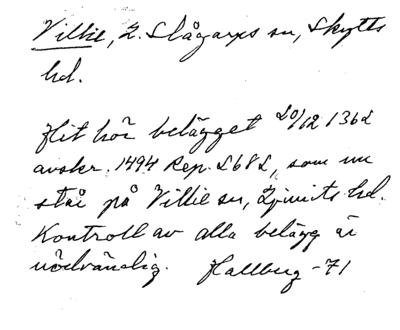 Villie, L. Slågarps sn, Skytts
hd.
Hit hör belägget 20/12 1362
avskr. 1494 Rep. 2682, som nu
står på Villie sn, Ljunits hd.
Kontroll av alla belägg är
nödvändig. Hallberg -71